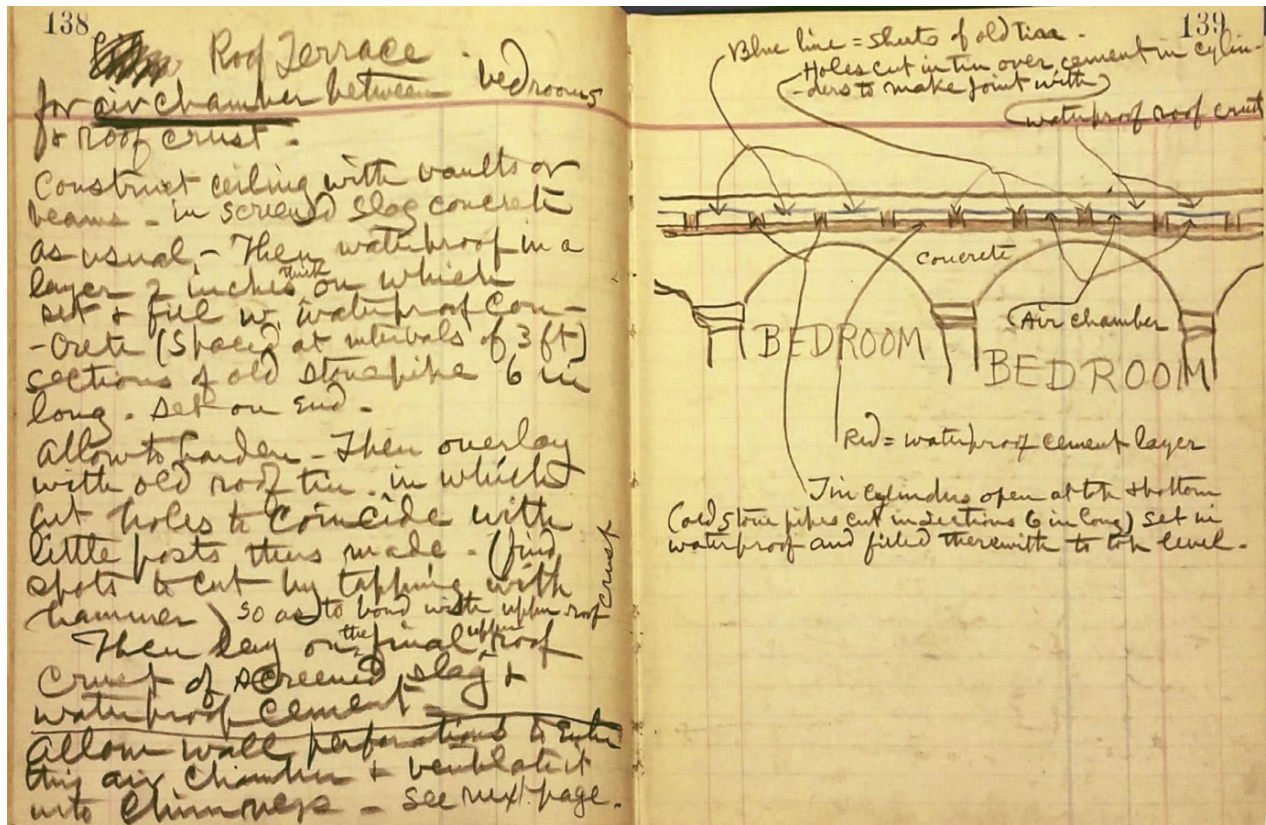 138
Roof Terrace.
for air chamber between bedrooms
& roof crust.
Construct ceiling with vaults or
beams - in screened slag concrete
as usual. - Then waterproof in a
layer 2 inches thick on which
set & fill w. waterproof con-
-crete (spaced at intervals of 3 ft)
sections of old stonepipe 6 in
long. set on end.
Allow to harden - Then overlay
with old roof tin in which
cut holes to coincide with
little posts thus made. (find
spots to cut by tapping with
hammer) so as to bond with upper roof crust
Then lay on the final upper roof
crust of screened slag &
waterproof cement
Allow wall perforations to enter
this air chamber & ventilate it
into chimneys - see next page.
139
Blue line = sheets of old tin.
Holes cut in tin over cement in cylin-
-ders to make joint with
waterproof roof crust
Concrete
Air chamber
BEDROOM
BEDROOM
Red = waterproof cement layer
Tin cylinders open at top & bottom
(old stone pipes cut in sections 6 in long) set in
waterproof and filled therewith to top level.